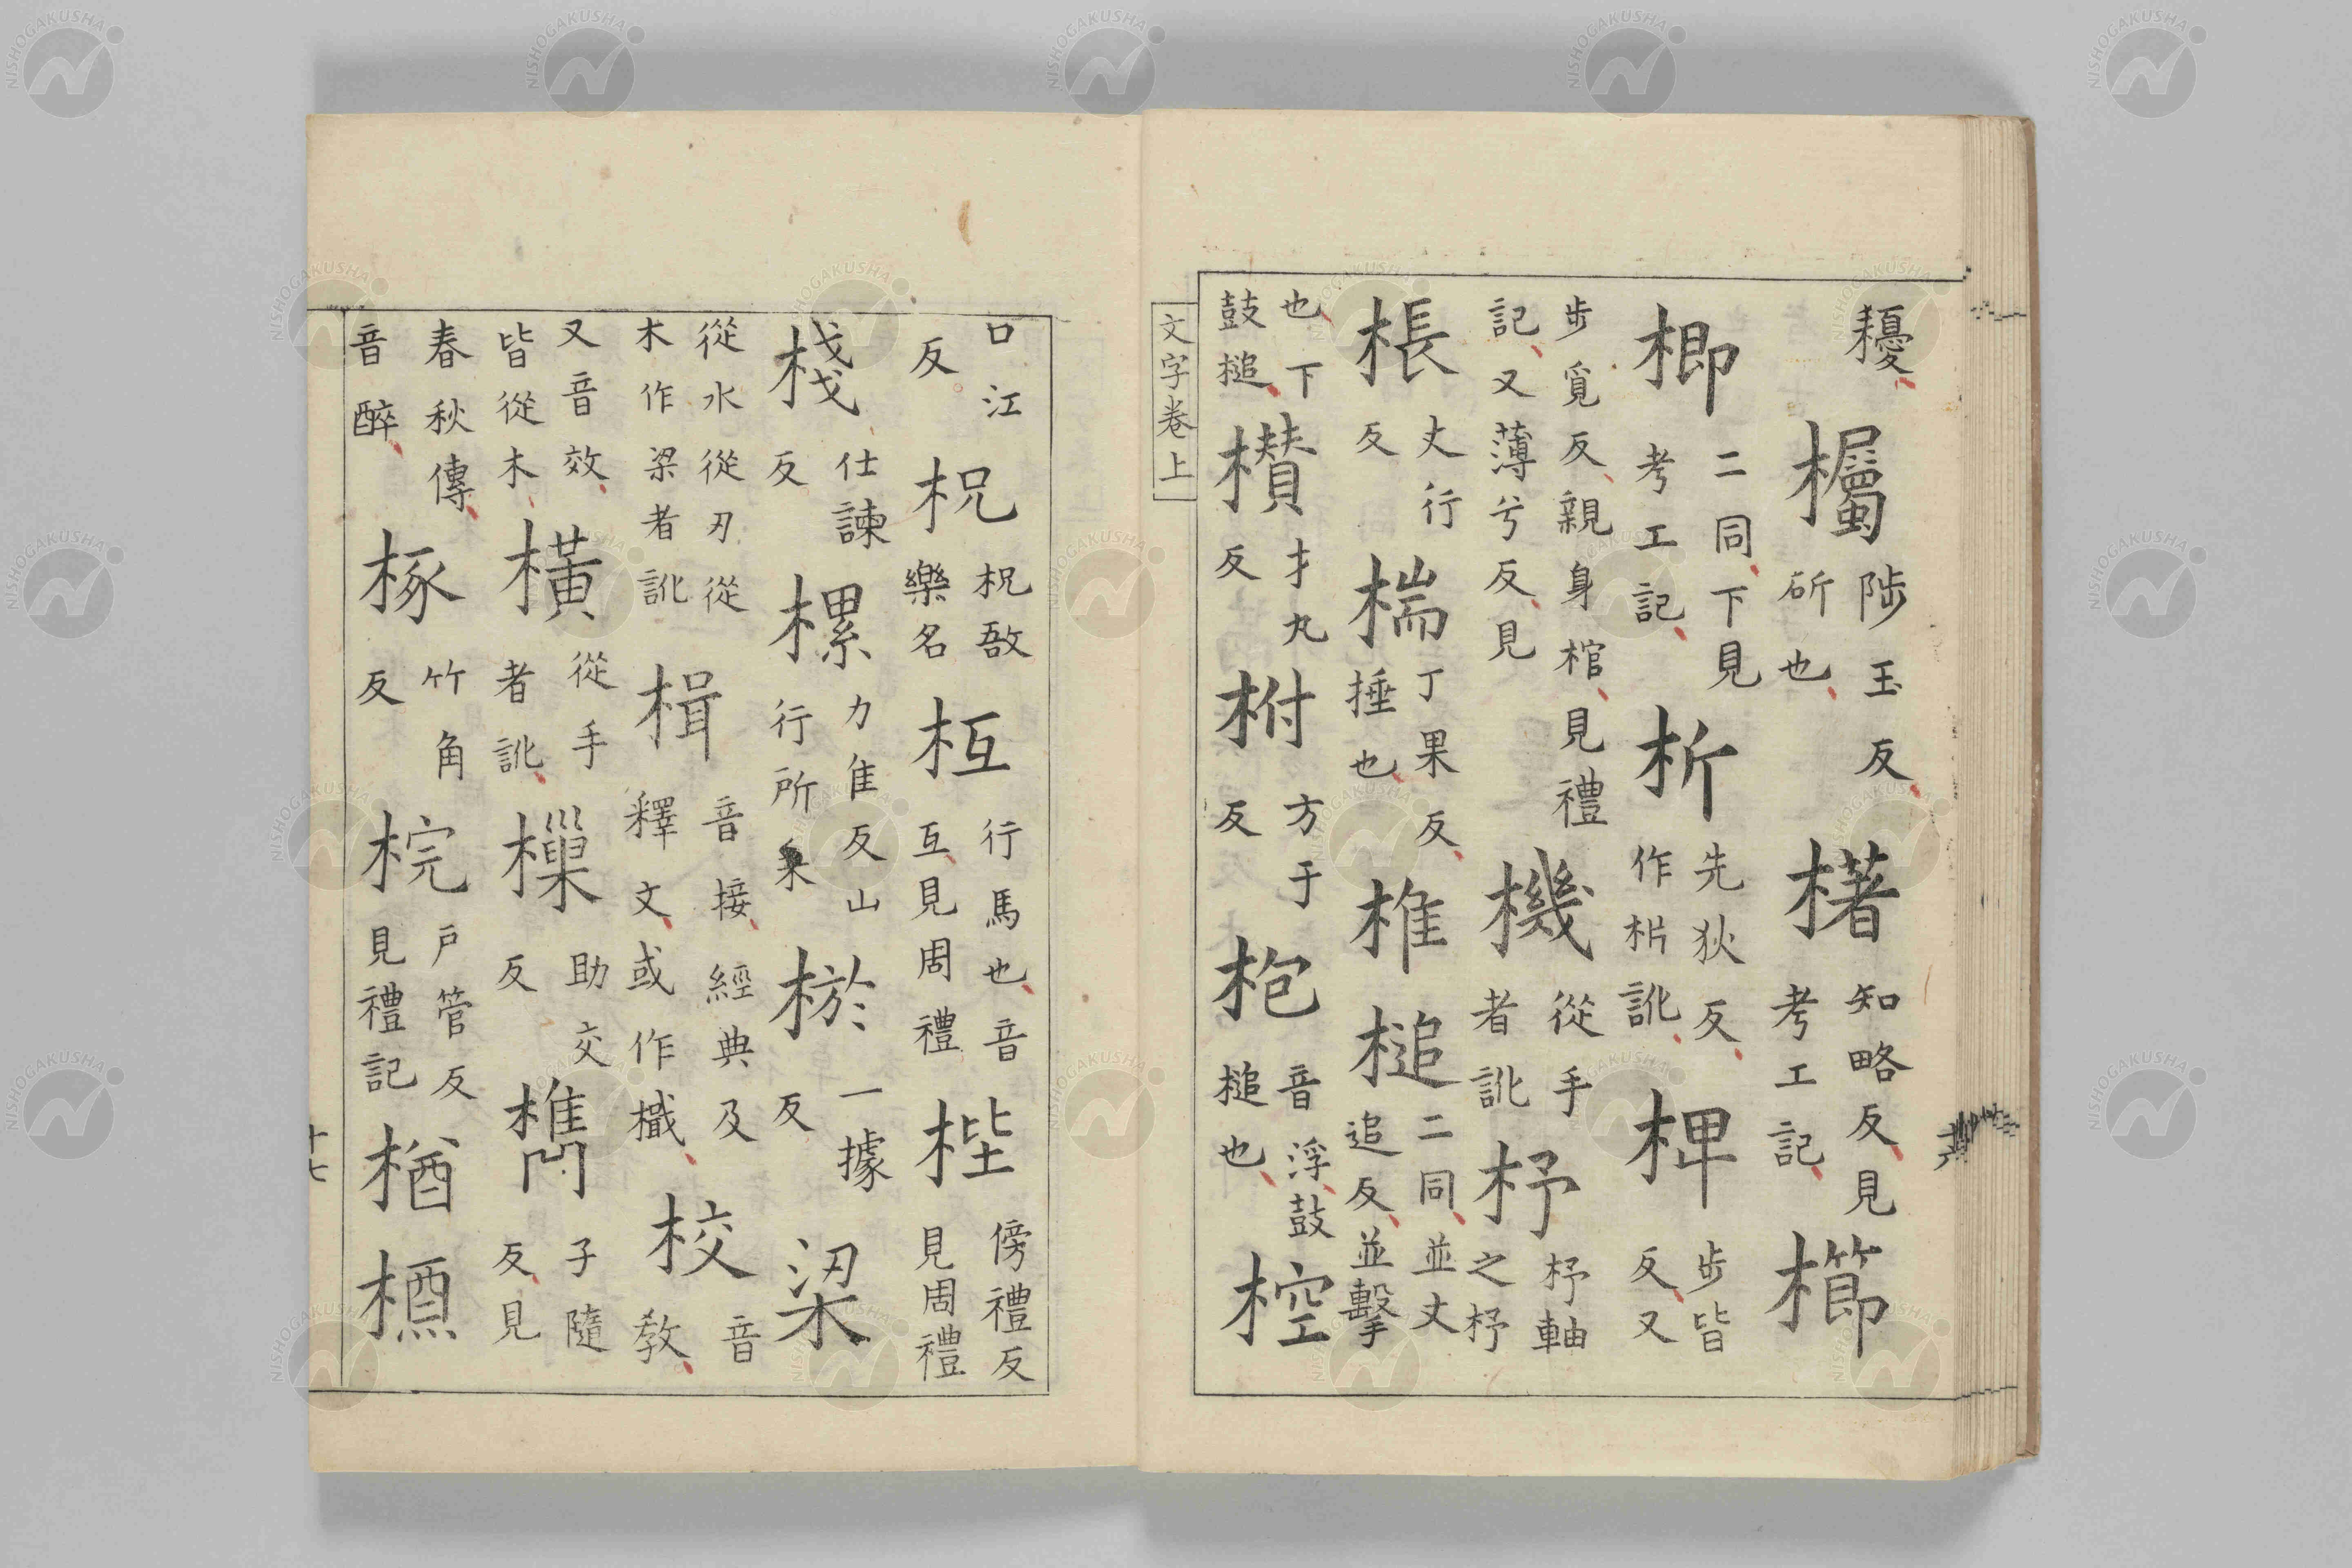 耰欘陟玉反斫也櫡知略反見考工記櫛
楖二同下見考工記析先狄反作㭊訛椑步皆反又
步覓反親身棺見禮記又薄兮反見機從手者訛杼杼軸之杼
棖丈行反椯丁果反捶也椎槌二同並丈追反並擊
也下鼓槌欑才丸反柎方于反枹音浮鼓槌也椌
文字卷上
口江反柷柷敔樂名枑行馬也音互見周禮梐傍禮反見周禮
棧仕諫反樏力隹反山行所乗棜一據反梁
從水從刃從木作梁者訛楫音接經典及釋文或作檝校音教
又音效皆從木橫從手者訛樔助交反檇子隨反見
春秋傳音醉椓竹角反梡戶管反見禮記楢槱
十七
NISHOGAKUSHA